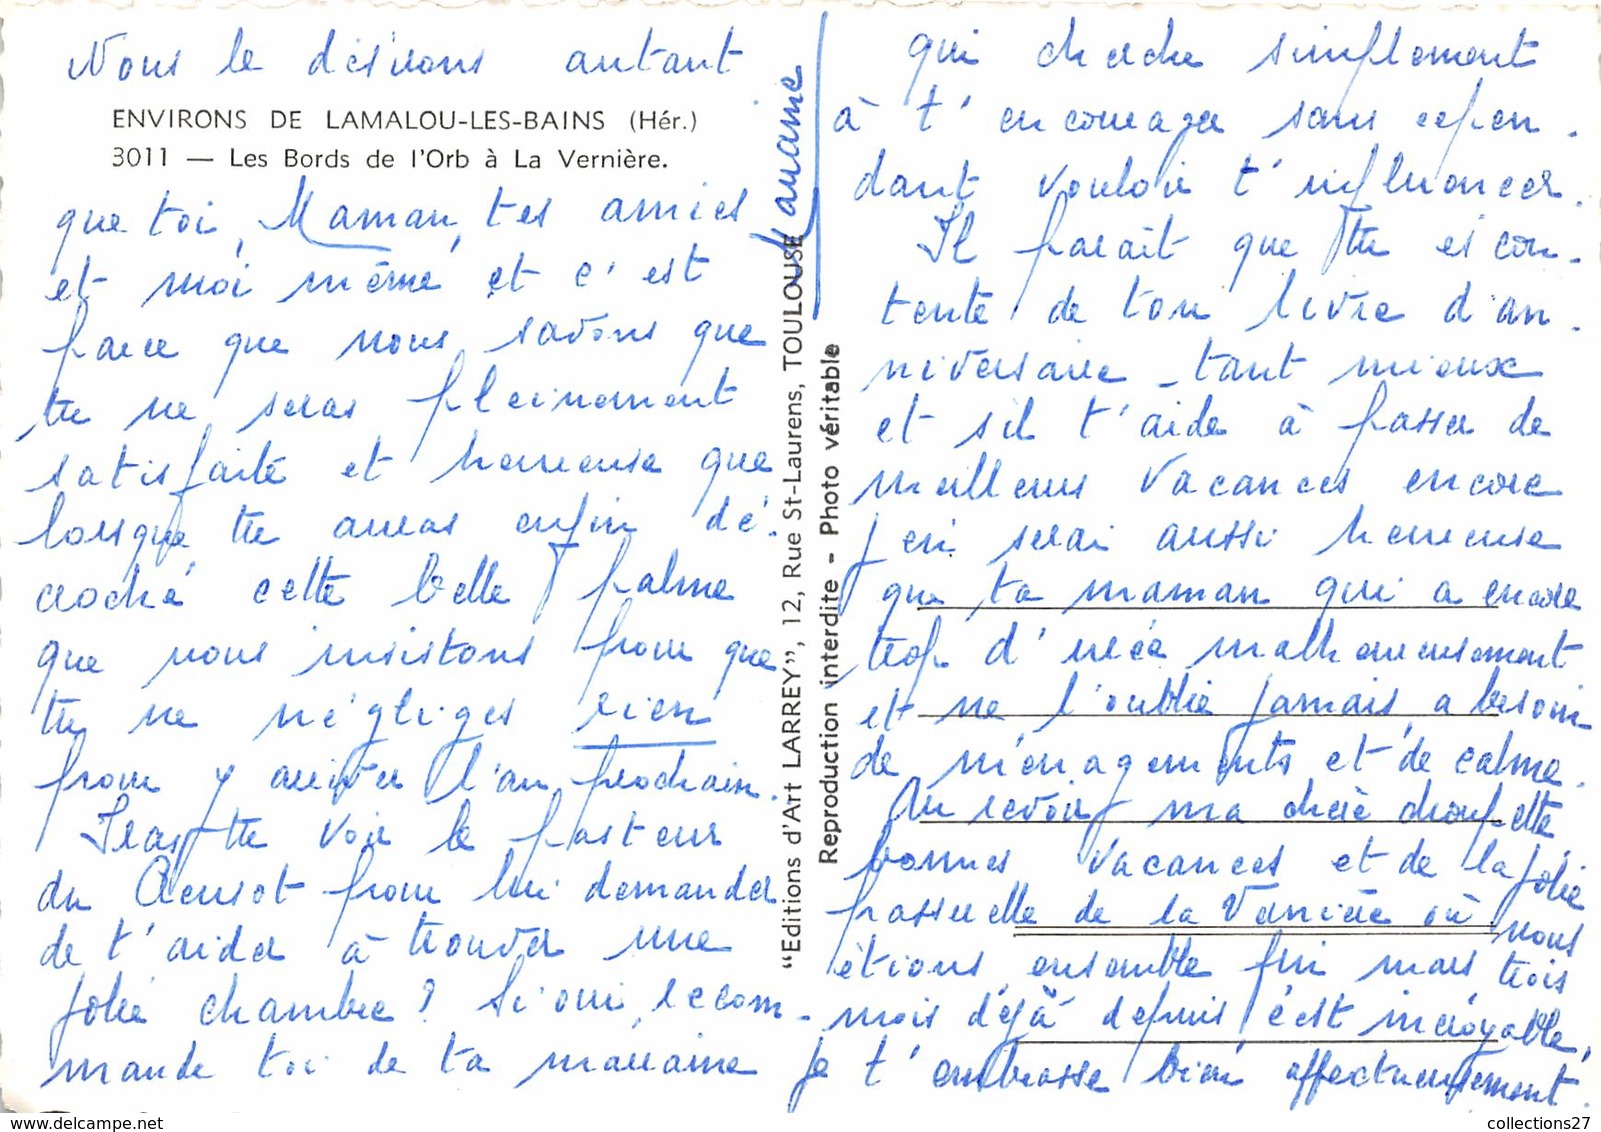 Nous le désirons autant
ENVIRONS DE LAMALOU-LES-BAINS (Hér.)
3011 — Les Bords de l'Orb à La Vernière.
que toi, Maman, tes amies
et moi même et c'est
parce que nous savons que
tu ne seras pleinement
satisfaite et heureuse que
lorsque tu auras enfin dé-
croché cette belle palme
que nous insistons pour que
tu ne négliges rien
pour y arriver l'an prochain.
Iras-tu voir le pasteur
du Creusot pour lui demander
de t'aider à trouver une
jolie chambre? Si oui, recom-
mande toi de ta marraine
qui cherche simplement
à t'encourager sans cepen-
dant vouloir t'influencer.
Il paraît que tu es con-
tente de ton livre d'an-
niversaire - tant mieux
et s'il t'aide à passer de
meilleures vacances encore
j'en serai aussi heureuse
que ta maman qui a encore
trop d'urée malheureusement
et ne l'oublie jamais, a besoin
de ménagements et de calme.
Au revoir ma chère choupette,
bonnes vacances et de la jolie
passerelle de la Vernière où nous
étions ensemble fin mars trois
mois déjà depuis c'est incroyable,
je t'embrasse bien affectueusement.
Marraine
"Editions d'Art LARREY", 12, Rue St-Laurens, TOULOUSE
Reproduction interdite - Photo véritable
collections27